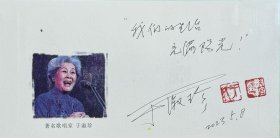 “我们的生活
充满阳光！”
于淑珍
2023.5.8
著名歌唱家 于淑珍